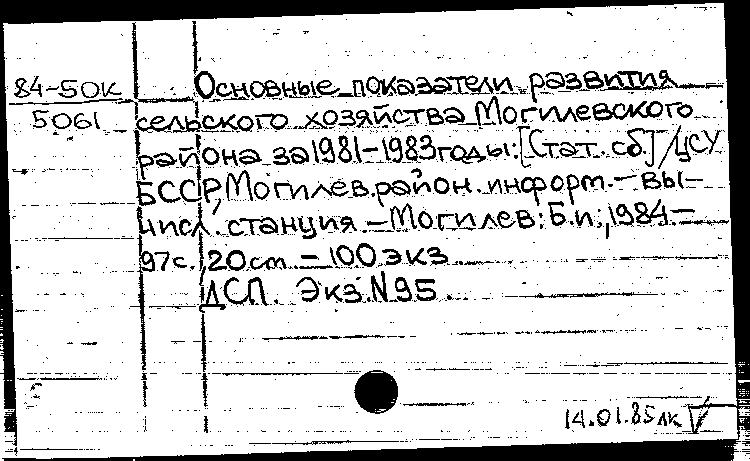 84-50К Основные показатели развития
5061 сельского хозяйства Могилевского
района за 1981-1983 годы: [Стат. сб.] / ЦСУ
БССР, Могилев. район. информ. - вы-
числ. станция - Могилев: Б.и., 1984 -
97с., 20 cm - 100 экз
ДСП. Экз N 95.
14.01.85 лк